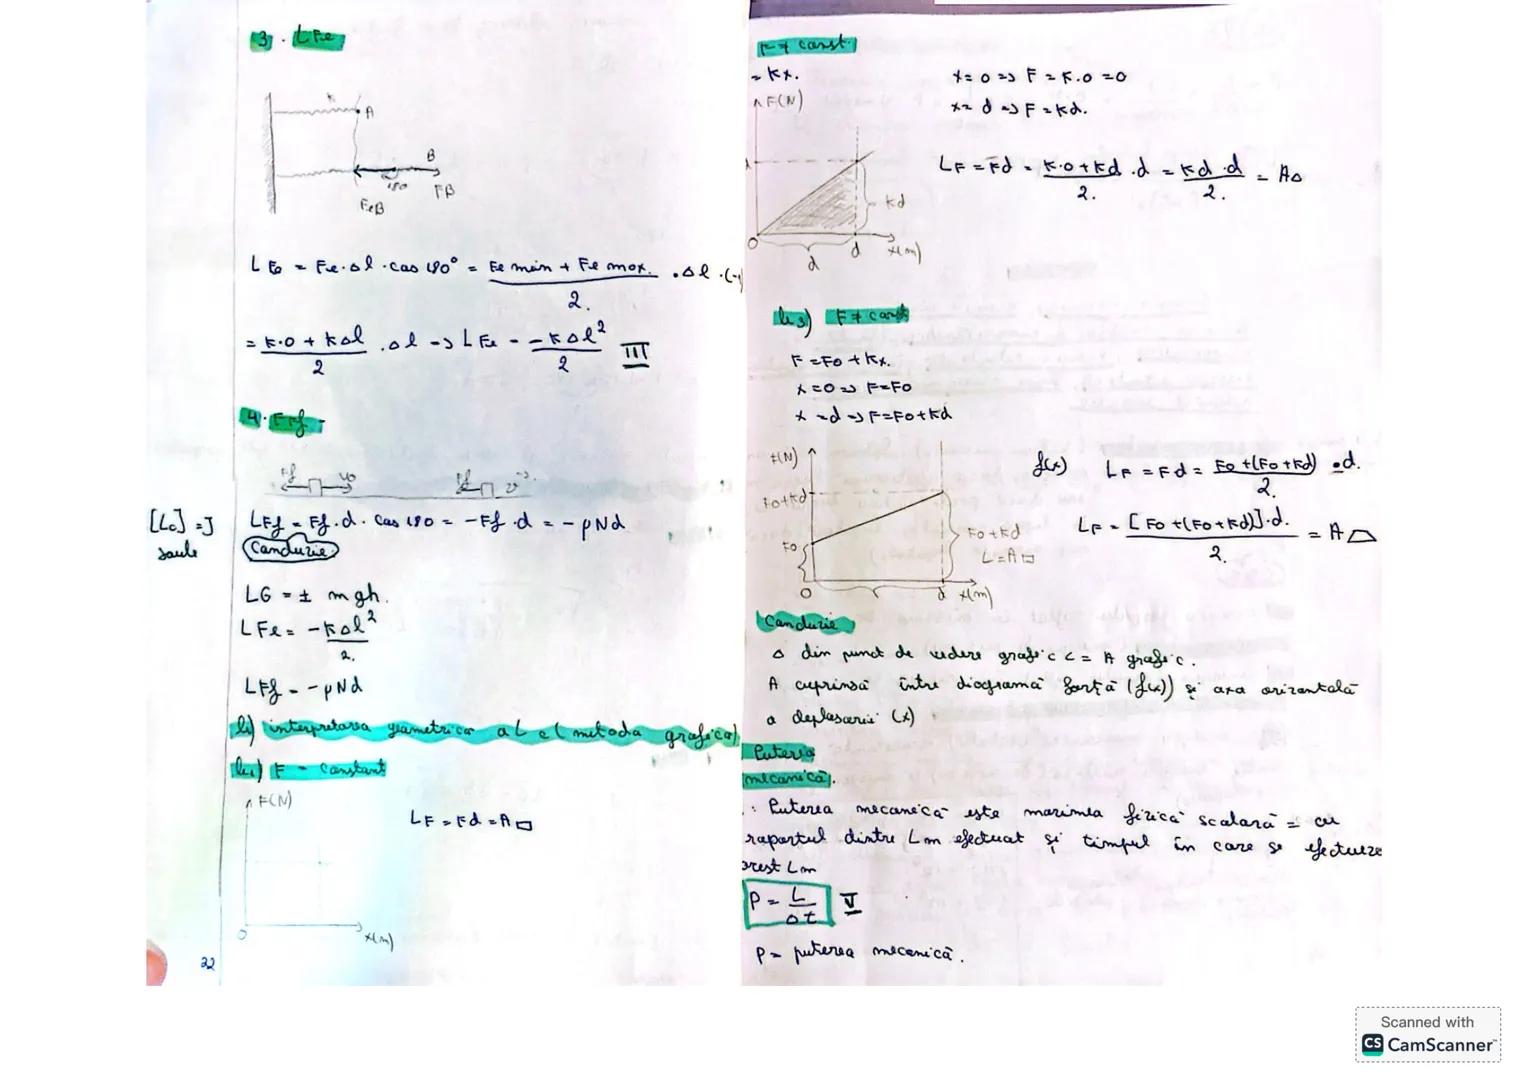 3. LFe
K
A
B
180
FeB
FB
LFe = Fe·Δl·cos 180° = Fe min + Fe max. / 2. ·Δl·(-1)
= K·0 + KΔl / 2 ·Δl => LFe = -KΔl² / 2 III
4. Ff
Ff v0 Ff v
[L] = J
Joule
LFf = Ff·d·cos 180 = -Ff·d = -μNd
Concluzie:
LG = ± mgh.
LFe = -KΔl² / 2.
LFf = -μNd
b) interpretarea geometrică a L (metoda grafică)
b1) F = constant
F(N)
LF = Fd = A▭
0
x(m)
22
F ≠ const.
= Kx.
x = 0 => F = K·0 = 0
x = d => F = Kd.
F(N)
LF = Fd = K·0 + Kd / 2. ·d = Kd·d / 2. = AΔ
Kd
0 d x(m)
d
b3) F ≠ const
F = F0 + Kx.
x = 0 => F = F0
x = d => F = F0 + Kd
F(N)
f(x)
LF = Fd = F0 + (F0 + Kd) / 2. ·d.
F0+Kd
LF = [F0 + (F0 + Kd)]·d. / 2. = A⏢
F0
F0 + Kd
L = A
0 d x(m)
Concluzie
Δ din punct de vedere grafic L = A grafic.
A cuprinsă între diagrama forță (f(x)) și axa orizontală
a deplasării (x)
Puterea
mecanică.
: Puterea mecanică este mărimea fizică scalară = cu
raportul dintre Lm efectuat și timpul în care se efectueze
acest Lm
P = L / Δt V
P = puterea mecanică.
Scanned with
CS CamScanner